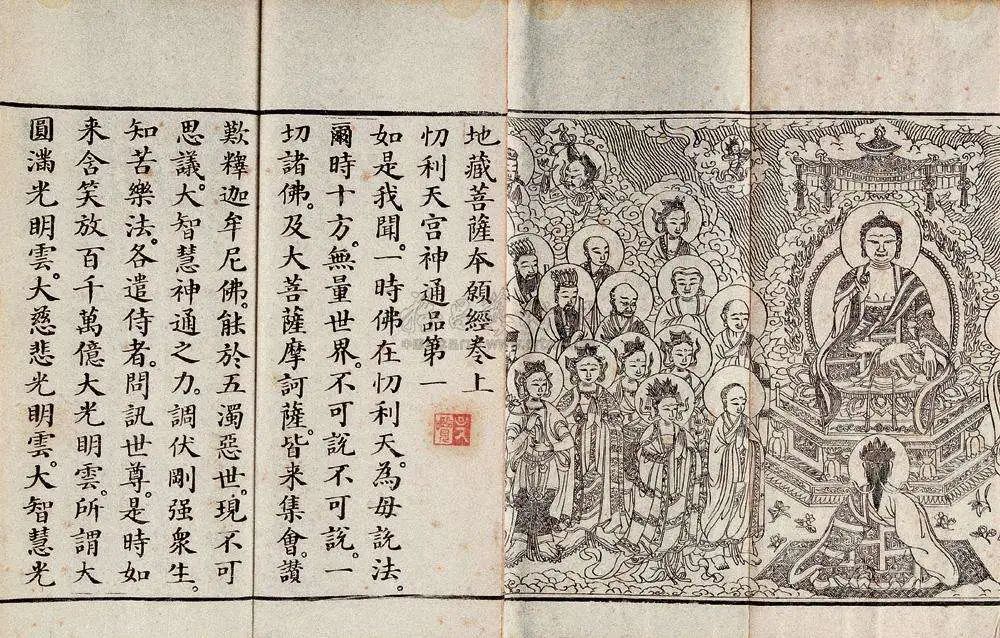 地藏菩薩本願經卷上
忉利天宮神通品第一
如是我聞。一時佛在忉利天。為母說法。
爾時十方。無量世界。不可說不可說。一
切諸佛。及大菩薩摩訶薩。皆來集會。讚
歎釋迦牟尼佛。能於五濁惡世。現不可
思議。大智慧神通之力。調伏剛强衆生。
知苦樂法。各遣侍者。問訊世尊。是時如
来含笑放百千萬億大光明雲。所謂大
圓滿光明雲。大慈悲光明雲。大智慧光